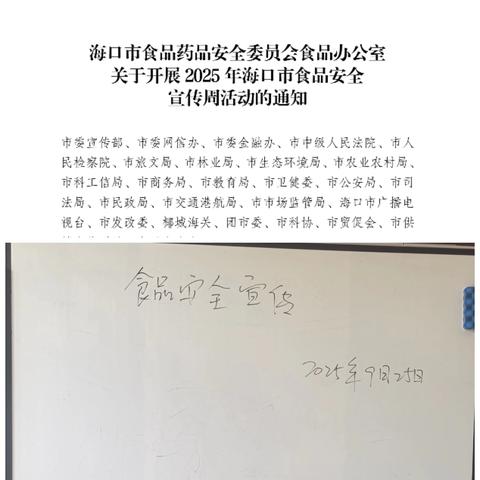 海口市食品药品安全委员会食品办公室
关于开展 2025 年海口市食品安全
宣传周活动的通知
市委宣传部、市委网信办、市委金融办、市中级人民法院、市人
民检察院、市旅文局、市林业局、市生态环境局、市农业农村局、
市科工信局、市商务局、市教育局、市卫健委、市公安局、市司
法局、市民政局、市交通港航局、市市场监管局、海口市广播电
视台、市发改委、椰城海关、团市委、市科协、市贸促会、市供
食品安全宣传
2025年9月25日